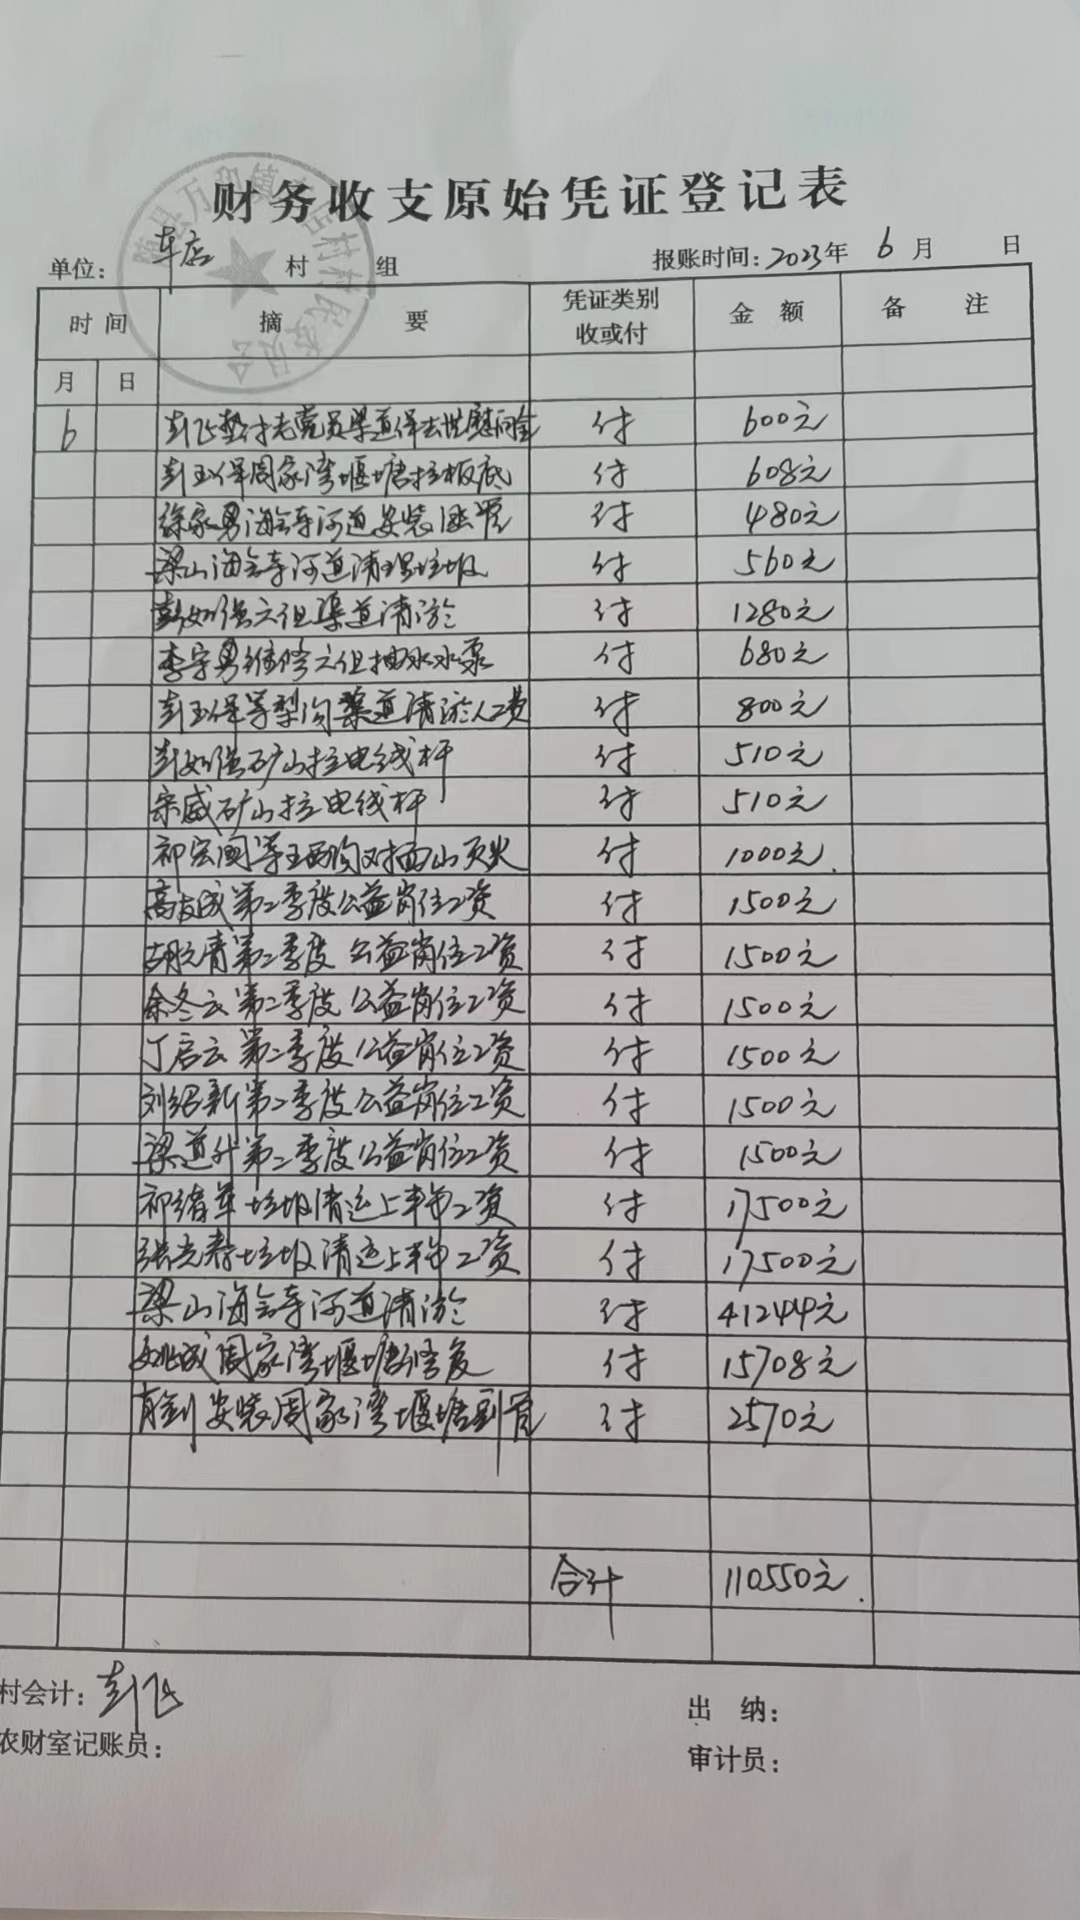 财务收支原始凭证登记表
随县万和镇车店村村民委员会
单位： 车店 村 组 报账时间：2023年 6月 日
时间 摘 要 凭证类别 收或付 金 额 备 注
月 日
6 彭飞垫付老党员梁道保去世慰问金 付 600元
彭玉保周家湾堰塘拉板底 付 608元
徐家勇海会寺河道安装涵管 付 480元
梁山海会寺河道清理垃圾 付 560元
彭如强六组渠道清淤 付 1280元
李宇勇维修六组抽水水泵 付 680元
彭玉保等犁沟渠道清淤人工费 付 800元
彭如强矿山拉电线杆 付 510元
宗威矿山拉电线杆 付 510元
祁宏国等王西沟对面山灭火 付 1000元
高友成第二季度公益岗位工资 付 1500元
胡立青第二季度公益岗位工资 付 1500元
余冬云第二季度公益岗位工资 付 1500元
丁启云第二季度公益岗位工资 付 1500元
刘绍新第二季度公益岗位工资 付 1500元
梁道升第二季度公益岗位工资 付 1500元
祁绪军垃圾清运上半年工资 付 17500元
张光春垃圾清运上半年工资 付 17500元
梁山海会寺河道清淤 付 41244元
姚成周家湾堰塘修复 付 15708元
安装周家湾堰塘到管 付 2570元
合计 110550元
村会计：彭飞 出 纳：
农财室记账员： 审计员：